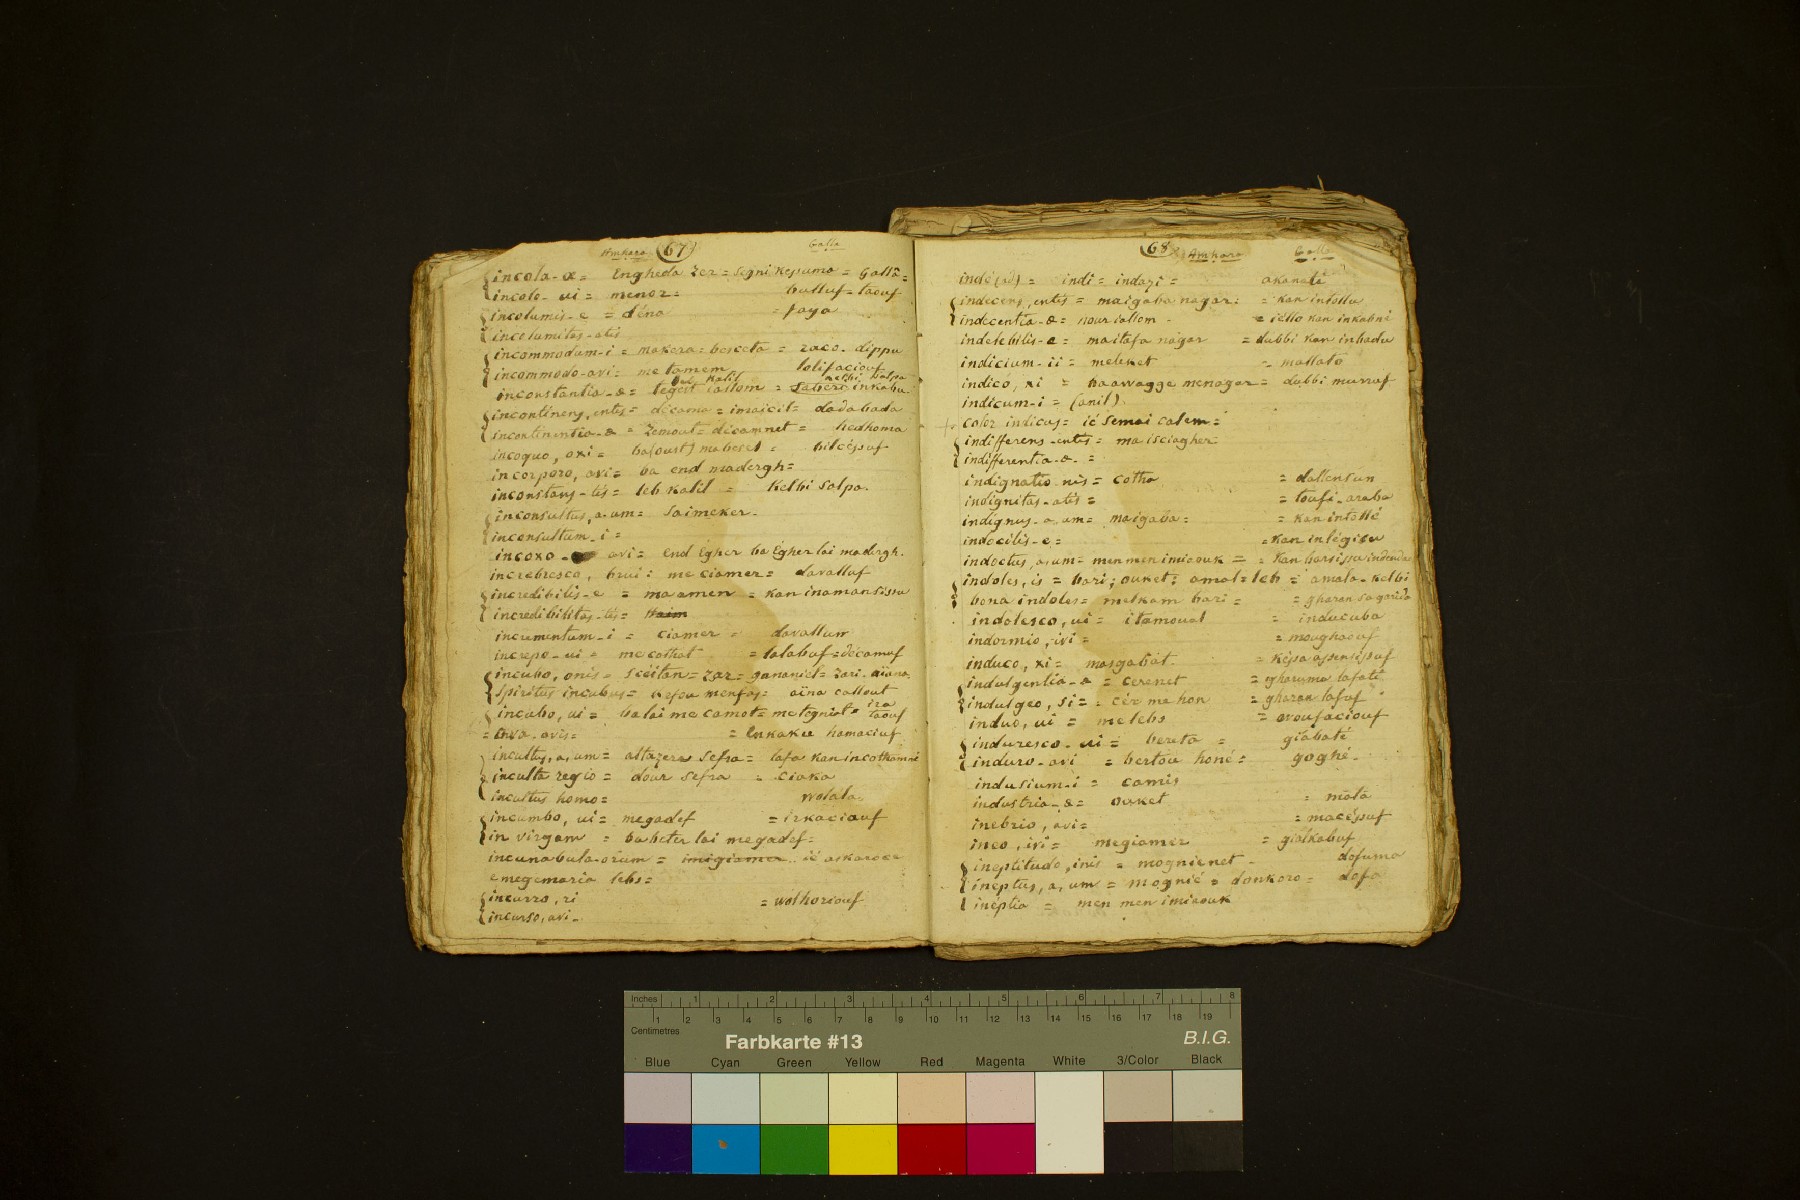 Amhara (67) Galla
incola-æ = Engheda zer = segni Kesuma = Galla =
incolo- ui = menor = bulluf = taouf
incolumis-e = déna = faya
incolumitas-atis
incommodum-i = makera = besceta = zaco. dippu
incommodo-avi = metamem lolifaciouf
leb kalil kelbi salpa
inconstantia-æ = tegest iallom = saberé inkabu
incontinens, entis = décama = imaicil = dadabada
incontinentia-æ = zemout = décamnet = hedhoma
incoquo, oxi = ba(oust) mabesel = bilcéssuf
incorporo, avi = ba end madergh =
inconstans-tis = leb kalil = Kelbi salpa.
inconsultus, a-um = saimeker.
inconsultum-i =
incoxo- avi = end Egher ba Egher lai madergh.
increbresco, brui = meciamer = davalluf
incredibilis-e = maamen = kan inamansissu
incredibilitas-tis =
incrementum-i = ciamer = davallum
increpo-ui = mecothat = lalabuf = décamuf
incubo, onis = sceitan = zar = gananiel = zari. aïana.
spiritus incubus = menfas = aïna callout
incubo, ui = balai mecamot = metogniat = irra taouf
= ova-avis = = Enkaku hamaciuf
incultus, a, um = altazera sefra = lafa kan incothamné
inculta regio = dour sefra = ciaka
incultus homo = wolála.
incumbo, ui = megadef = irkaciouf
in virgam = babeter lai megadef =
incunabula-orum = imigiamer. ié askaroce
emegemaria lebs =
incurro, ri = wolhoriouf
incurso, avi-
(68) Amhara Galla
indé = indi = indazi = akanaté
indecens, entis = maigaba nagar = = kan intollu
indecentia-æ = nour iallom - = iéllo kan inkabni
indelebilis-e = maitafa nagar = dubbi kan inbadu
indicium-ii = meleket = mallato
indico, xi = baawagge menagar = dubbi murruf
indicum-i = (anil)
color indicus = ié semai calem =
indifferens-entis = maisciagher =
indifferentia-æ. =
indignatio-nis = cotha = dallensun
indignitas-atis = = toufi-araba
indignus-a, um = maigaba = = kan intollé
indocilis-e = = kan inlégisu
indoctus, a, um = menmen imiaouk = = kan barsissu indendau
indoles, is = bari; ouket; amal = leb = amala-kelbi
bona indoles = melkam bari = = gharan sagarida
indolesco, ui = itamoual = inducuba
indormio, ivi = = moughaouf
induco, xi = masgabat. = késa assensissuf
indulgentia-æ = cerenet = gharuma lafaté
indulgeo, si = = cér mehon = gharan lafuf
induo, ui = melebs = ovoufaciouf
induresco-ui = bereta = giabaté
induro-avi = bertou honé = goghé.
indusium-i = camis
industria-æ = ouket = mala
inebrio, avi = = macéssuf
ineo, ivi = megiamer = gialkabuf
ineptitudo, inis = mognienet - dófuma
ineptus, a, um = mognié = donkoro = dofa
ineptia = men men imiaouk
Inches 1 2 3 4 5 6 7 8
1 2 3 4 5 6 7 8 9 10 11 12 13 14 15 16 17 18 19
Centimetres
Farbkarte #13 B.I.G.
Blue Cyan Green Yellow Red Magenta White 3/Color Black